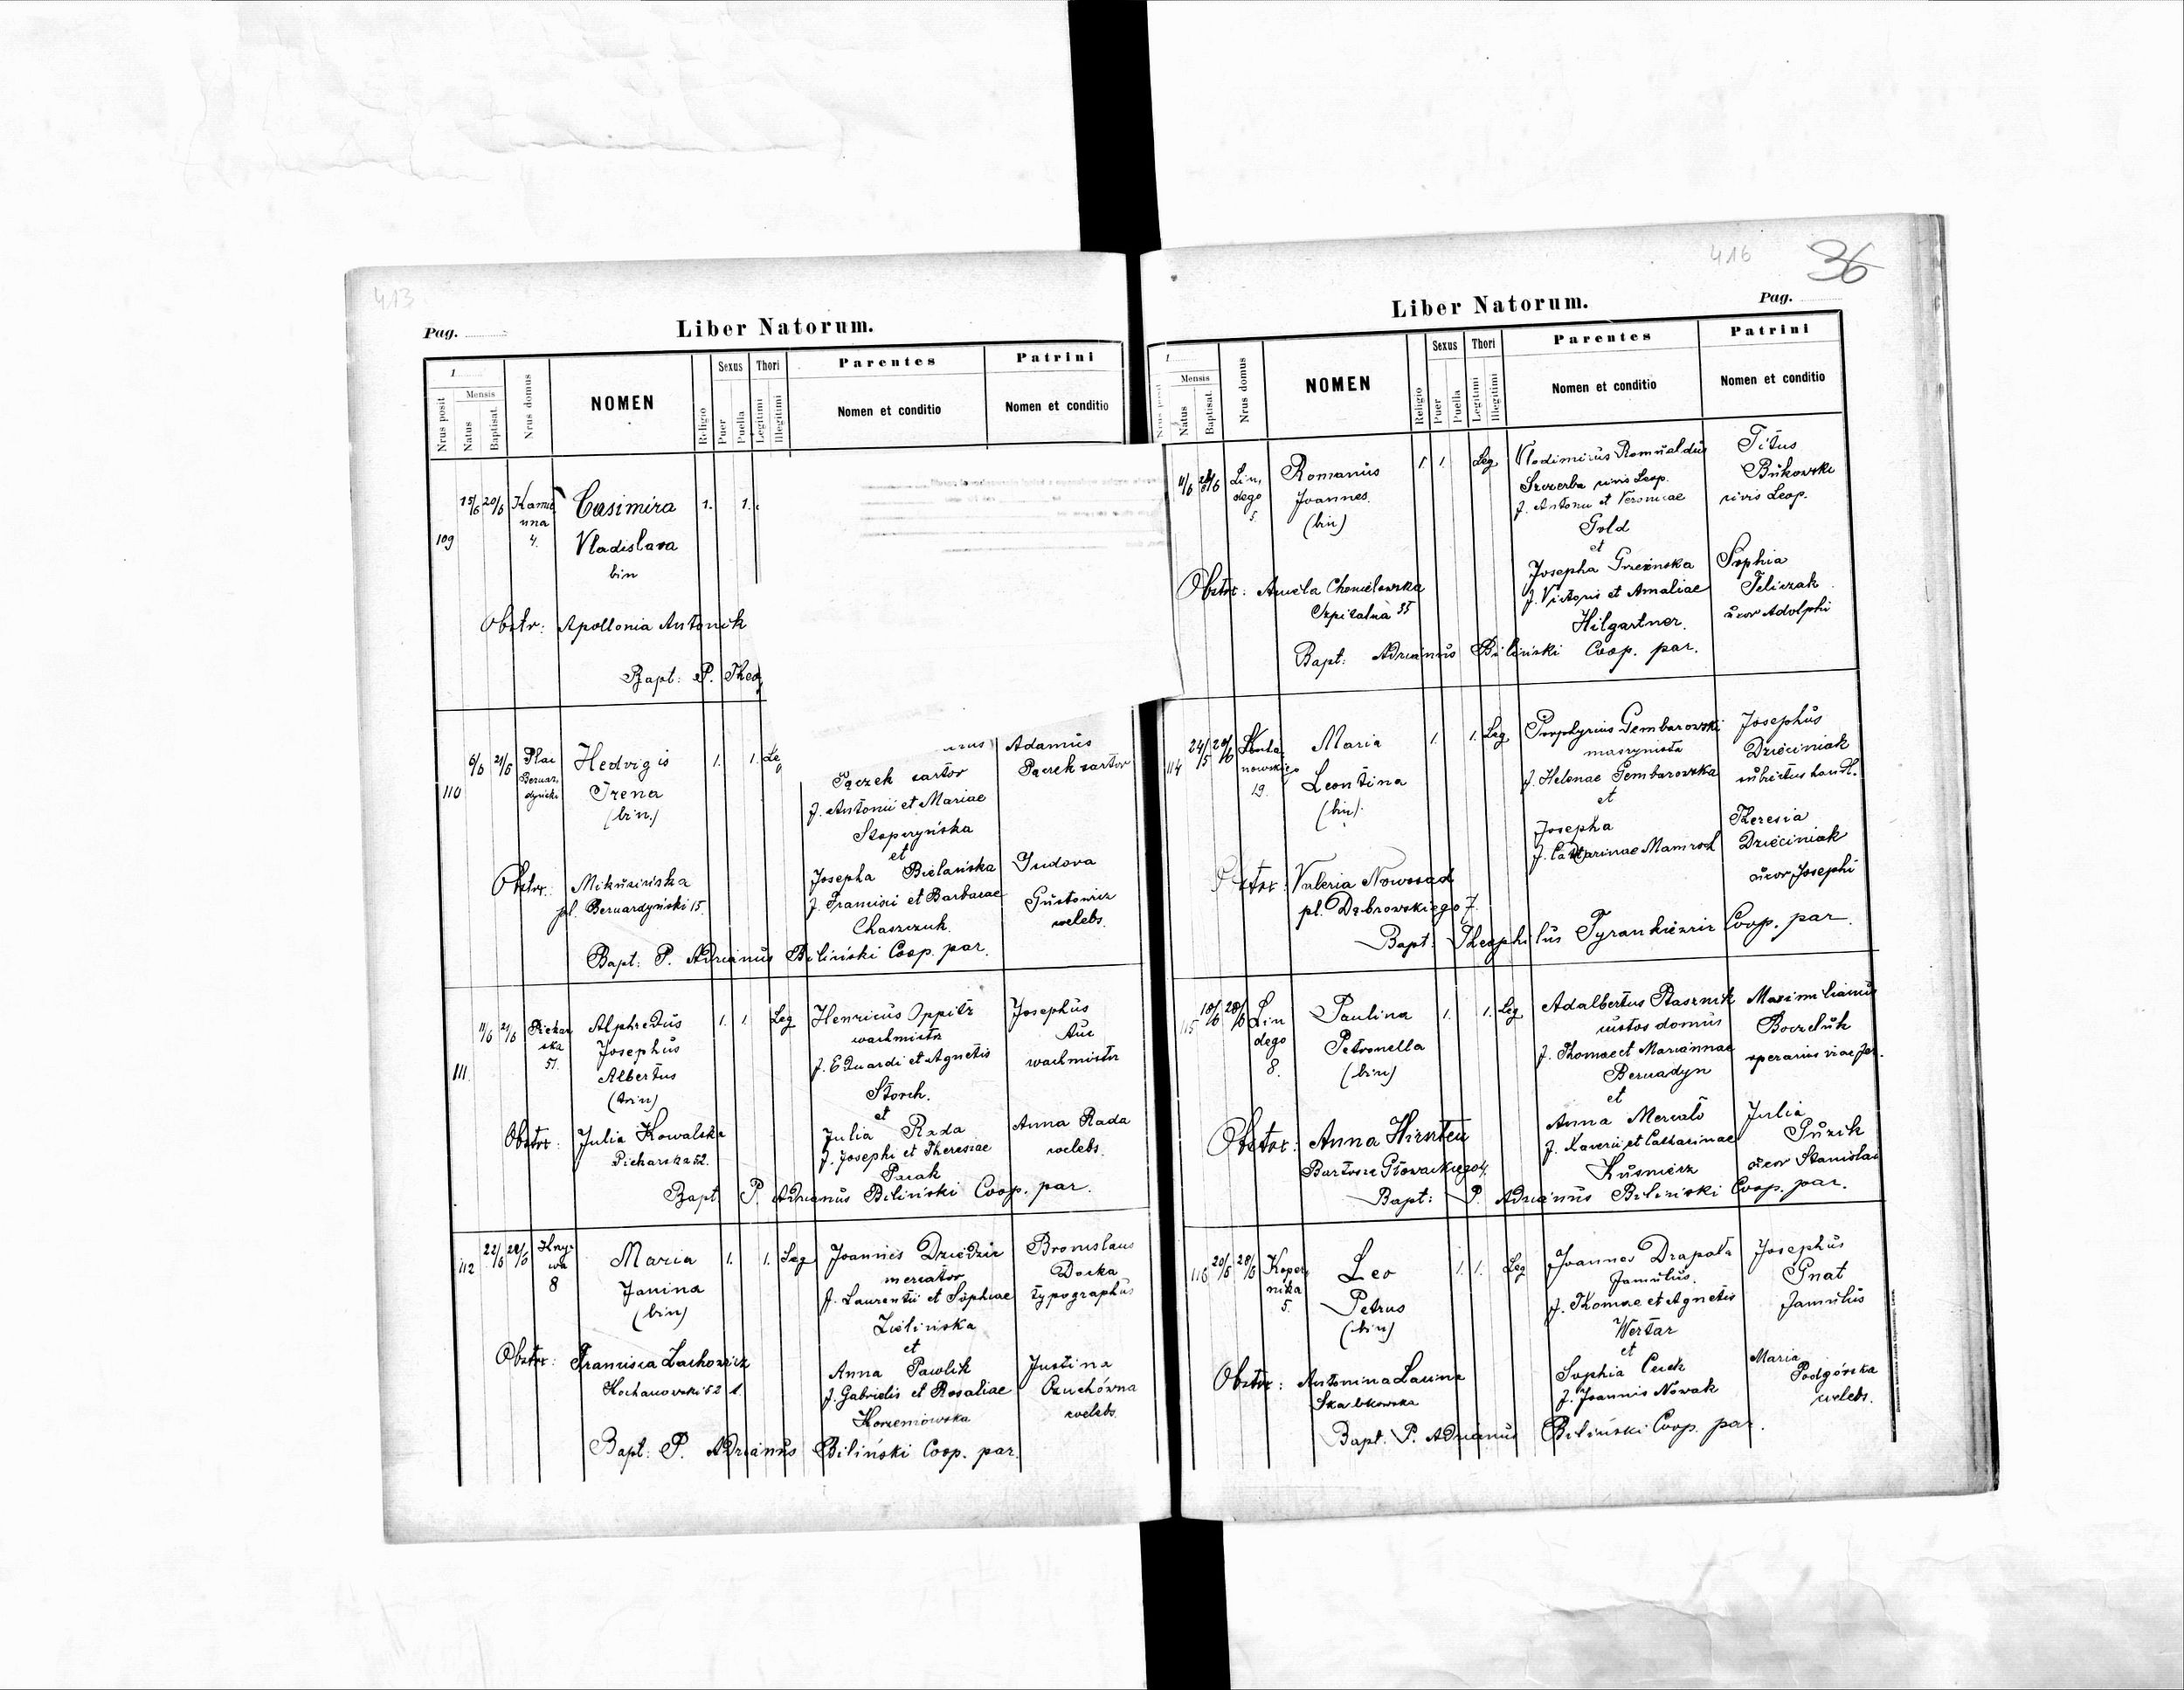 413
Pag.
Liber Natorum.
1
Mensis
Nrus posit
Natus
Baptisat.
Nrus domus
NOMEN
Religio
Sexus
Puer
Puella
Thori
Legitimi
Illegitimi
Parentes
Nomen et conditio
Patrini
Nomen et conditio
109
15/6 20/6
Kamie
nna
4.
Casimira
Vladislava
bin
1. 1.
Obstr: Apollonia Antonik
Bapt: P. Theo
110
6/6 21/6
Plac
Bernar.
dyński
Hedvigis
Irena
(bin.)
1. 1. Leg
Pączek sartor
f. Antonii et Mariae
Stopczyńska
et
Josepha Bielańska
f. Francisci et Barbarae
Chaszczuk.
Adamus
Pączek sartor
Gustowicz
celebs.
Obstr: Mikusińska
pl. Bernardyński 15.
Bapt: P. Adrianus Biliński Coop. par.
111.
11/6 21/6
Piekar
ska
51.
Alphredus
Josephus
Albertus
(trin)
1. 1. Leg
Henricus Oppitz
wachmistr
f. Eduardi et Agnetis
Storch.
et
Julia Rada
f. Josephi et Theresiae
Josephus
Auc
wachmistr
Anna Rada
celebs.
Obstr: Julia Kowalska
Piekarska 52.
Bapt P. Adrianus Biliński Coop. par.
112
22/6
8
Maria
Janina
(bin)
1. 1. Leg
Joannes Dziedzic
mercator
f. Laurentii et Sophiae
Zielińska
et
Anna Pawlik
f. Gabrielis et Rosaliae
Korzeniowska
Bronislaus
Doska
typographus
Justina
celebs
Obstr: Francisca Lachowicz
Bapt: P. Adrianus Biliński Coop. par.
416
36
Liber Natorum.
Pag.
1
Mensis
Nrus posit
Natus
Baptisat.
Nrus domus
NOMEN
Religio
Sexus
Puer
Puella
Thori
Legitimi
Illegitimi
Parentes
Nomen et conditio
Patrini
Nomen et conditio
11/6
Lin,
dego
5.
Romanus
Joannes.
(bin)
1. 1. Leg
Vlodimirus Romualdus
Szczerba civis Leop.
f. Antonii et Veronicae
Gold
et
f. Victoris et Amaliae
Hilgartner.
Titus
Bukowski
civis Leop.
Sophia
Feliczak
uxor Adolphi
Obstr: Amelia Chmielowska
Szpitalna 35
Bapt: Adrianus Biliński Coop. par.
114
24/5
Kocha
nowskiego
19.
Maria
Leontina
(bin).
1. 1. Leg
Porphyrius Gembarowski
maszynista
f. Helenae Gembarowska
et
Josepha
f. Catharinae Mamroch
Josephus
Dzieciniak
Theresia
Dzieciniak
uxor Josephi
Obstr: Valeria Nowosad
pl. Dąbrowskiego 7.
Bapt: Theophilus Tyrankiewicz Coop. par.
115
Lin
dego
8.
Paulina
Petronella
(bin)
1. 1. Leg
Adalbertus Ptasznik
custos domus
f. Thomae et Mariannae
Bernadyn
et
Anna
f. Xaverii et Catharinae
Kuśnierz
Maximilianus
Boczeluk
operarius viae fer.
Julia
Puzik
uxor Stanislai
Obstr: Anna Hirnteu
Bapt: P. Adrianus Biliński Coop. par.
116
20/6 28/6
Koper
nika
5.
Leo
Petrus
(bin)
1. 1. Leg
Joannes Drapała
famulus.
f. Thomae et Agnetis
Wertar
et
Sophia
f. Joannis Nowak
Josephus
Gnat
famulus
Maria
Podgórska
celebs.
Obstr: Antonina Lacina
Skałkowska
Bapt. P. Adrianus Biliński Coop. par.